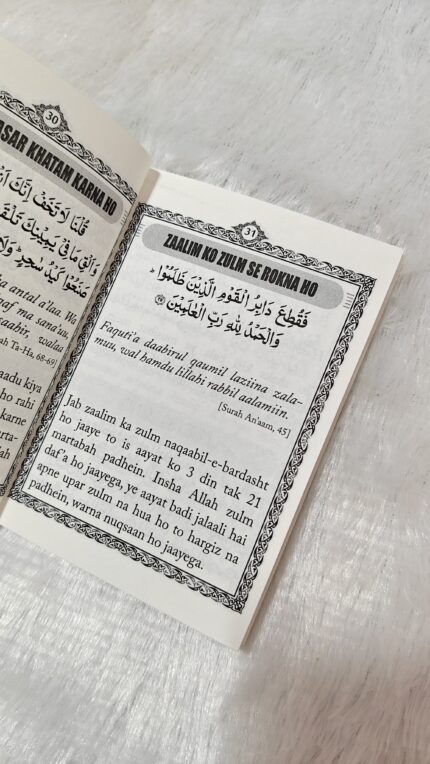 30
ASAR KHATAM KARNA HO
قُلْنَا لَا تَخَفْ اِنَّكَ اَنْتَ
وَاَلْقِ مَا فِيْ يَمِيْنِكَ تَلْقَفْ
صَنَعُوْا كَيْدُ سٰحِرٍ ؕ وَلَا
a antal a'laa. Wa
qaf ma sana'uu,
aahir, walaa
ah Ta-Ha, 68-69]
aadu kiya
ho rahi
karne
urta-
31
ZAALIM KO ZULM SE ROKNA HO
فَقُطِعَ دَابِرُ الْقَوْمِ الَّذِيْنَ ظَلَمُوْا ؕ
وَالْحَمْدُ لِلّٰهِ رَبِّ الْعٰلَمِيْنَ
Faquti'a daabirul qaumil laziina zala-
muu, wal hamdu lillahi rabbil aalamiin.
[Surah An'aam, 45]
Jab zaalim ka zulm naqaabil-e-bardasht
ho jaaye to is aayat ko 3 din tak 21
martabah padhein. Insha Allah zulm
daf'a ho jaayega, ye aayat badi jalaali hai
apne upar zulm na hua ho to hargiz na
padhein, warna nuqsaan ho jaayega.